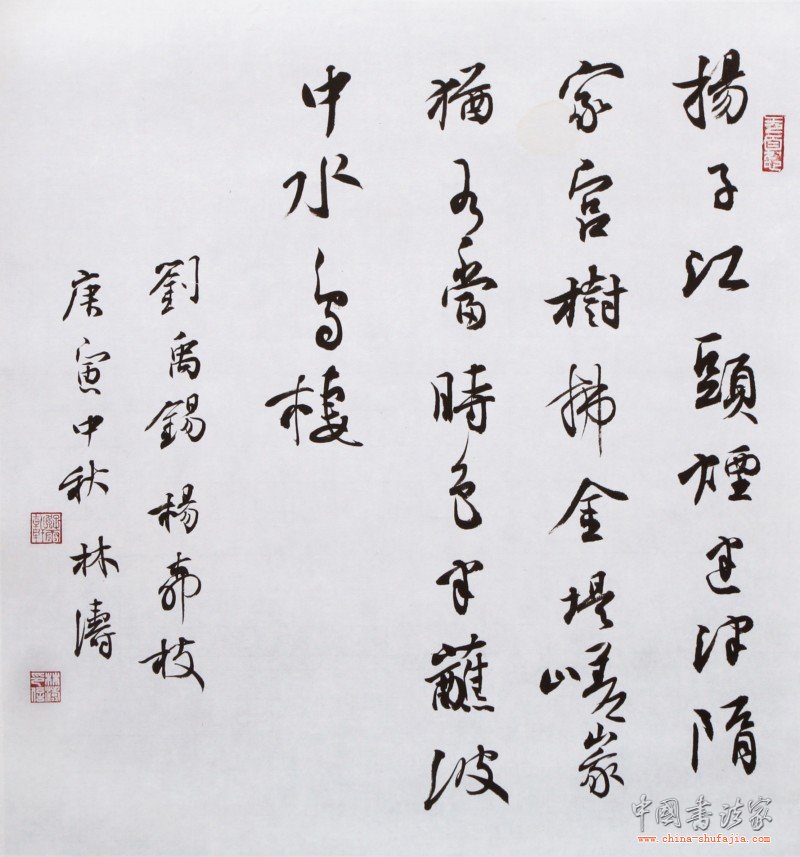 揚子江頭煙迷津隋
家宮樹拂金堤嵯峩
猶有當時色半蘸波
中水鳥棲
劉禹錫楊柳枝
庚寅中秋林濤
中國書法家
www.china-shufajia.com